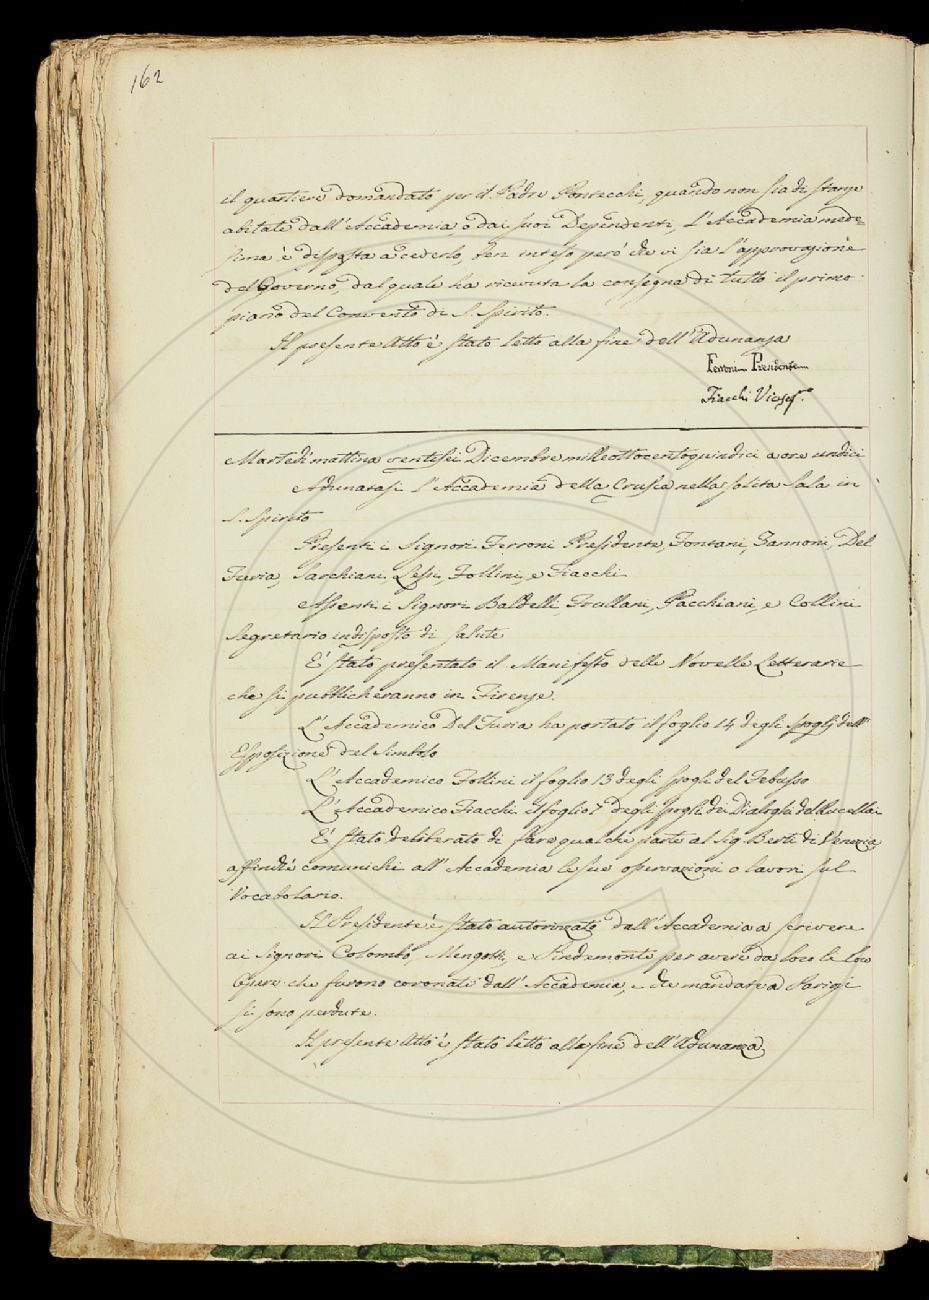 162
il quartiere domandato per il Padre Pontecchi, quando non sia di stanze
abitate dall'Accademia, o dai suoi Dependenti, L'Accademia mede=
sima è disposta a cederlo, ben inteso però che vi sia l'approvazione
del Governo, dal quale ha ricevuta la consegna di tutto il primo
piano del Convento di S. Spirito.
Il presente Atto è stato letto alla fine dell'Adunanza
Ferroni Presidente
Fiacchi Viceseg.rio
Martedì mattina ventisei Dicembre milleottocentoquindici a ore undici
Adunatasi l'Accademia della Crusca nella solita Sala in
S. Spirito
Presenti i Signori Ferroni Presidente, Fontani, Zannoni, Del
Furia, Sarchiani, Lessi, Follini, e Fiacchi
Assenti i Signori Baldelli, Frullani, Pacchiani, e Collini
Segretario indisposto di salute
E' stato presentato il Manifesto delle Novelle Letterarie
che si pubblicheranno in Firenze.
L'Accademico Del Furia ha portato il foglio 14 degli spogli dell'
Esposizione del Simbolo
L'Accademico Follini il foglio 13 degli spogli del Febusso
L'Accademico Fiacchi il foglio 7 degli spogli dei Dialoghi del Rucellai
E' stato deliberato di fare qualche parte al Sig. Berti di Venezia
affinchè comunichi all'Accademia le sue osservazioni o lavori sul
Vocabolario.
Il Presidente è stato autorizzato dall'Accademia a scrivere
ai Signori Colombo, Mengotti, e Pindemonte per avere da loro le loro
Opere che furono coronate dall'Accademia, e che mandate a Parigi
si sono perdute.
Il presente Atto è stato letto alla fine dell'Adunanza